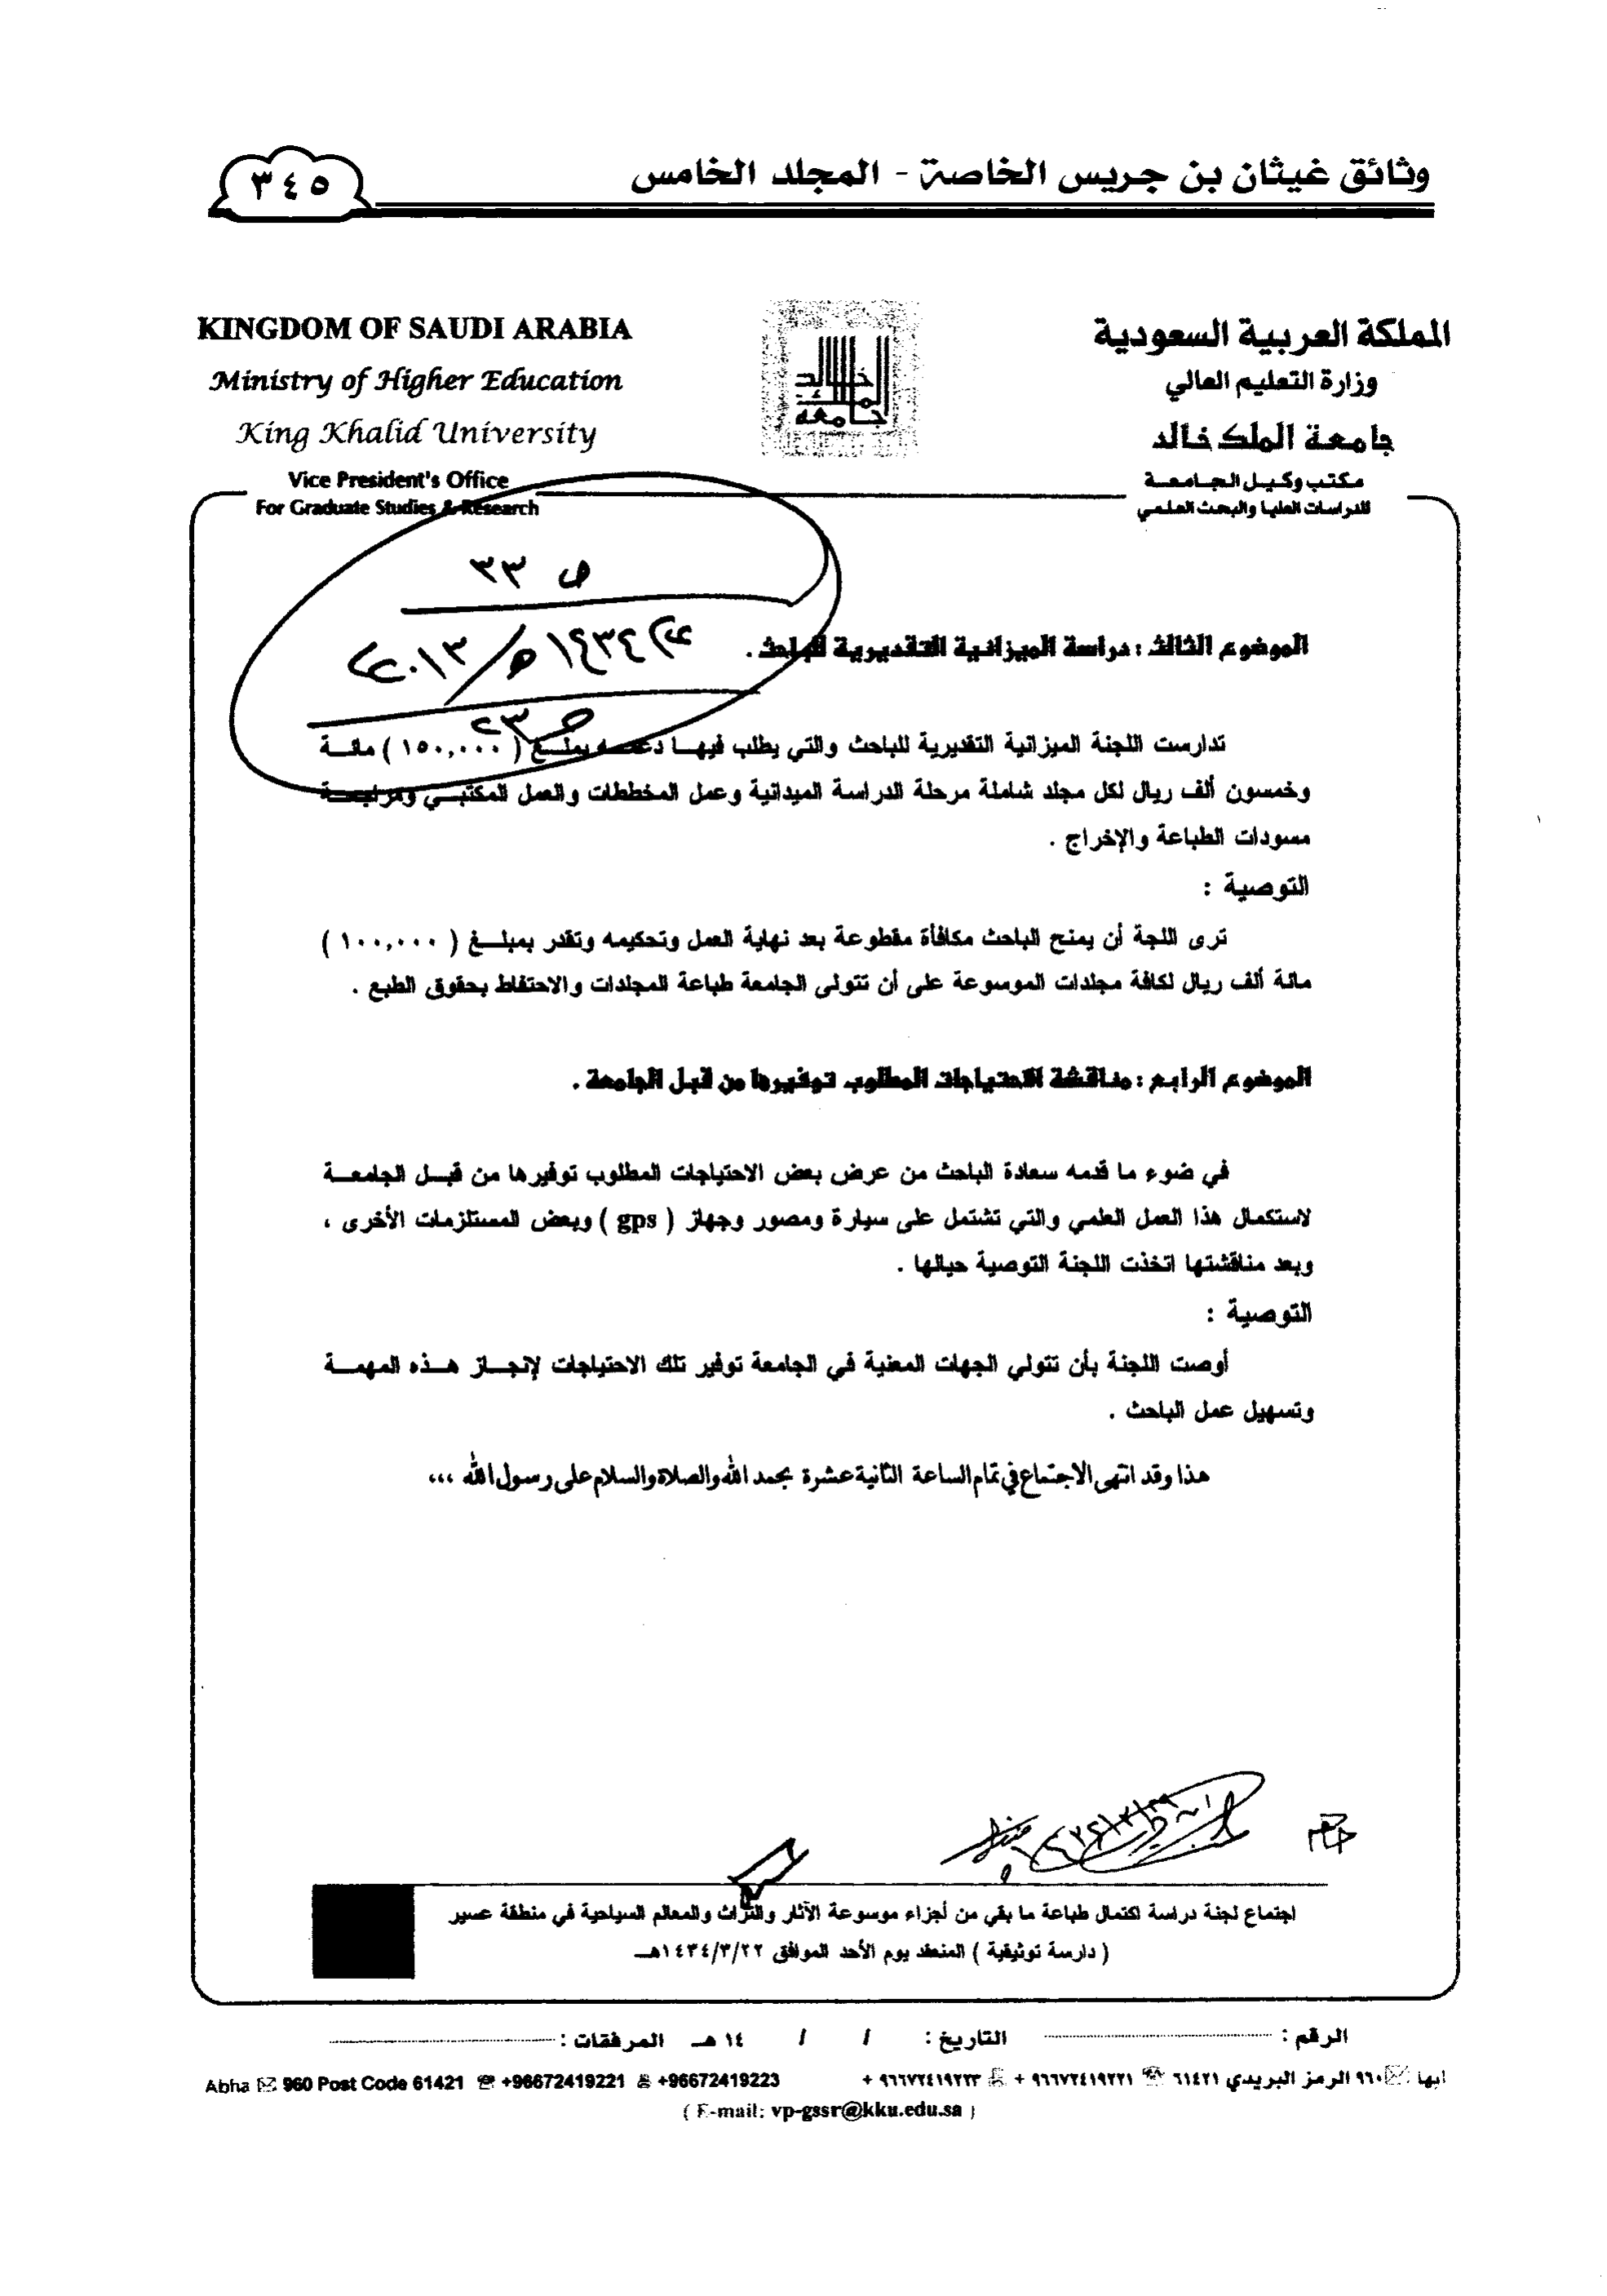 وثائق غيثان بن جريس الخاصة - المجلد الخامس
٣٤٥
KINGDOM OF SAUDI ARABIA
Ministry of Higher Education
King Khalid University
Vice President's Office
For Graduate Studies & Research
المملكة العربية السعودية
وزارة التعليم العالي
جامعة الملك خالد
مكتب وكيل الجامعة
للدراسات العليا والبحث العلمي
جامعة
الملك
خالد
ص ٣٣
١٤٣٤هـ / ٢٠١٣
الموضوع الثالث : دراسة الميزانية التقديرية للباحث .
تدارست اللجنة الميزانية التقديرية للباحث والتي يطلب فيها دعمه بمبلغ ( ١٥٠,٠٠٠ ) مائة
وخمسون ألف ريال لكل مجلد شاملة مرحلة الدراسة الميدانية وعمل المخططات والعمل المكتبي ومراجعة
مسودات الطباعة والإخراج .
التوصية :
ترى اللجة أن يمنح الباحث مكافأة مقطوعة بعد نهاية العمل وتحكيمه وتقدر بمبلغ ( ١٠٠,٠٠٠ )
مائة ألف ريال لكافة مجلدات الموسوعة على أن تتولى الجامعة طباعة المجلدات والاحتفاظ بحقوق الطبع .
الموضوع الرابع : مناقشة الاحتياجات المطلوب توفيرها من قبل الجامعة .
في ضوء ما قدمه سعادة الباحث من عرض بعض الاحتياجات المطلوب توفيرها من قبل الجامعة
لاستكمال هذا العمل العلمي والتي تشتمل على سيارة ومصور وجهاز ( gps ) وبعض المستلزمات الأخرى ،
وبعد مناقشتها اتخذت اللجنة التوصية حيالها .
التوصية :
أوصت اللجنة بأن تتولي الجهات المعنية في الجامعة توفير تلك الاحتياجات لإنجاز هذه المهمة
وتسهيل عمل الباحث .
هذا وقد انتهى الاجتماع في تمام الساعة الثانية عشرة بحمد الله والصلاة والسلام على رسول الله ،،،
اجتماع لجنة دراسة اكتمال طباعة ما بقي من أجزاء موسوعة الآثار والتراث والمعالم السياحية في منطقة عسير
( دارسة توثيقية ) المنعقد يوم الأحد الموافق ١٤٣٤/٣/٢٢هـ
الرقم : التاريخ : / / ١٤ هـ المرفقات :
ابها ٩٦٠ الرمز البريدي ٦١٤٢١ ٩٦٦٧٢٤١٩٢٢١ + ٩٦٦٧٢٤١٩٢٢٣ +
Abha 960 Post Code 61421 +96672419221 +96672419223
( E-mail: vp-gssr@kku.edu.sa )